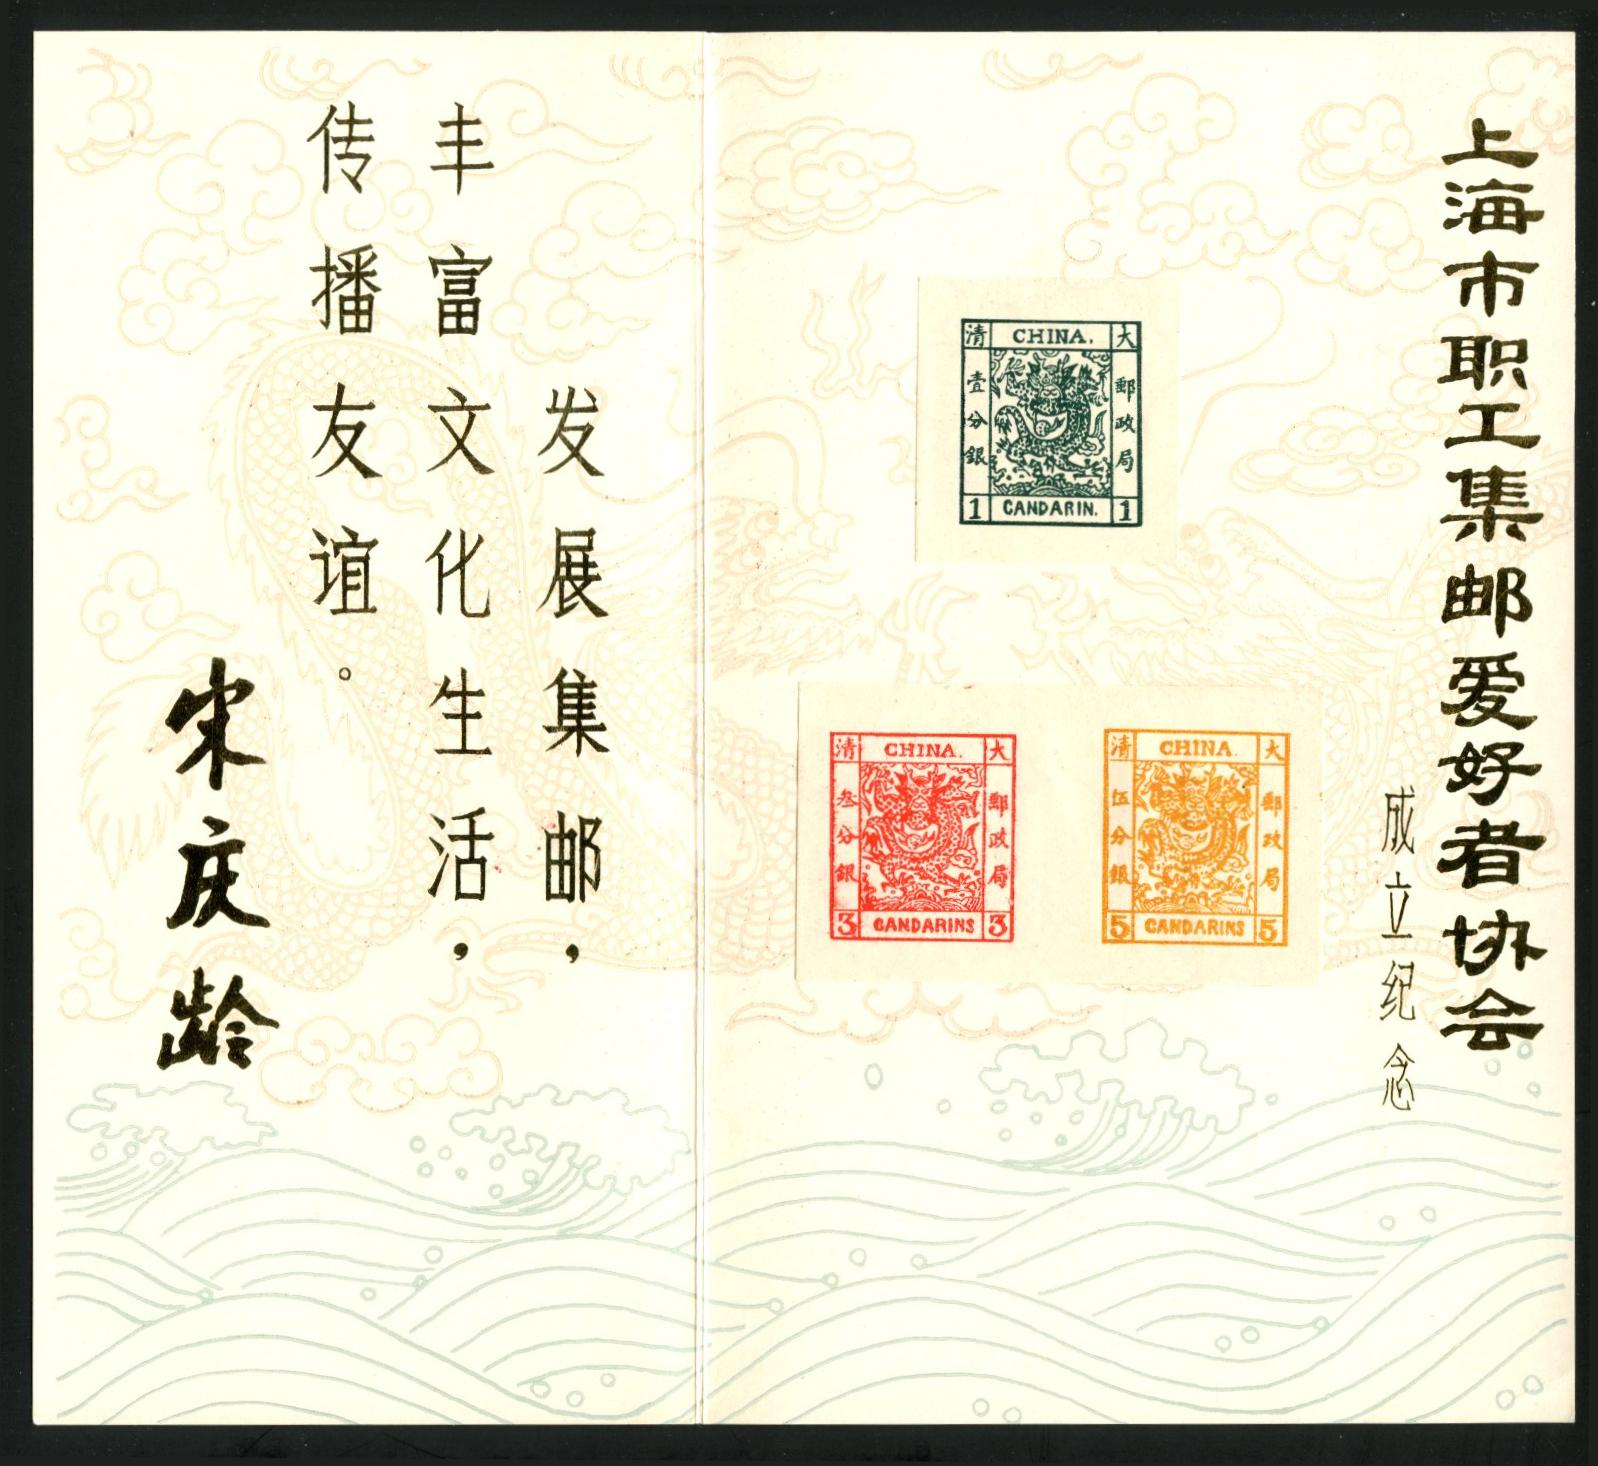 上海市职工集邮爱好者协会
成立纪念
清 CHINA. 大
壹分銀
郵政局
1 CANDARIN. 1
清 CHINA. 大
叁分銀
郵政局
3 CANDARINS 3
清 CHINA. 大
伍分銀
郵政局
5 CANDARINS 5
发展集邮，
丰富文化生活，
传播友谊。
宋庆龄